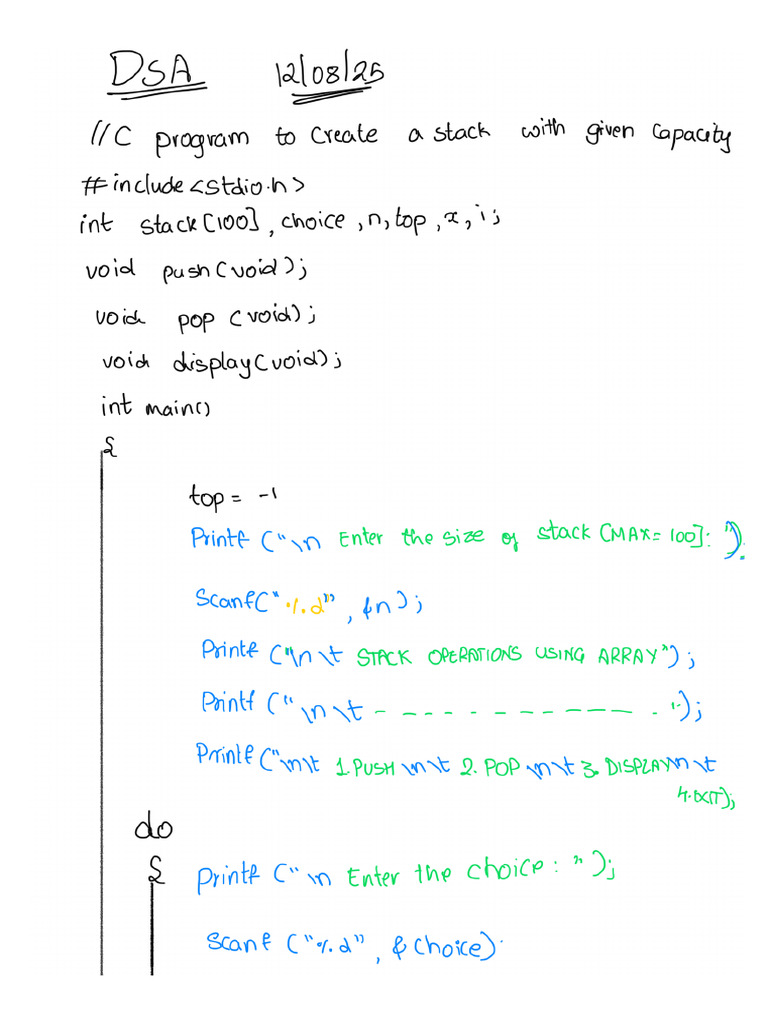 DSA 12/08/25
//C program to create a stack with given capacity
#include<stdio.h>
int stack[100], choice, n, top, x, i;
void push(void);
void pop (void);
void display(void);
int main()
{
top = -1
Printf ("\n Enter the size of stack [MAX=100]: ");
Scanf("%d", &n);
Printf ("\n\t STACK OPERATIONS USING ARRAY");
Printf ("\n\t - - - - - - - - - - - - ");
Printf ("\n\t 1.PUSH \n\t 2. POP \n\t 3. DISPLAY\n\t
4.EXIT);
do
{ printf ("\n Enter the choice: ");
Scanf ("%d", &choice).